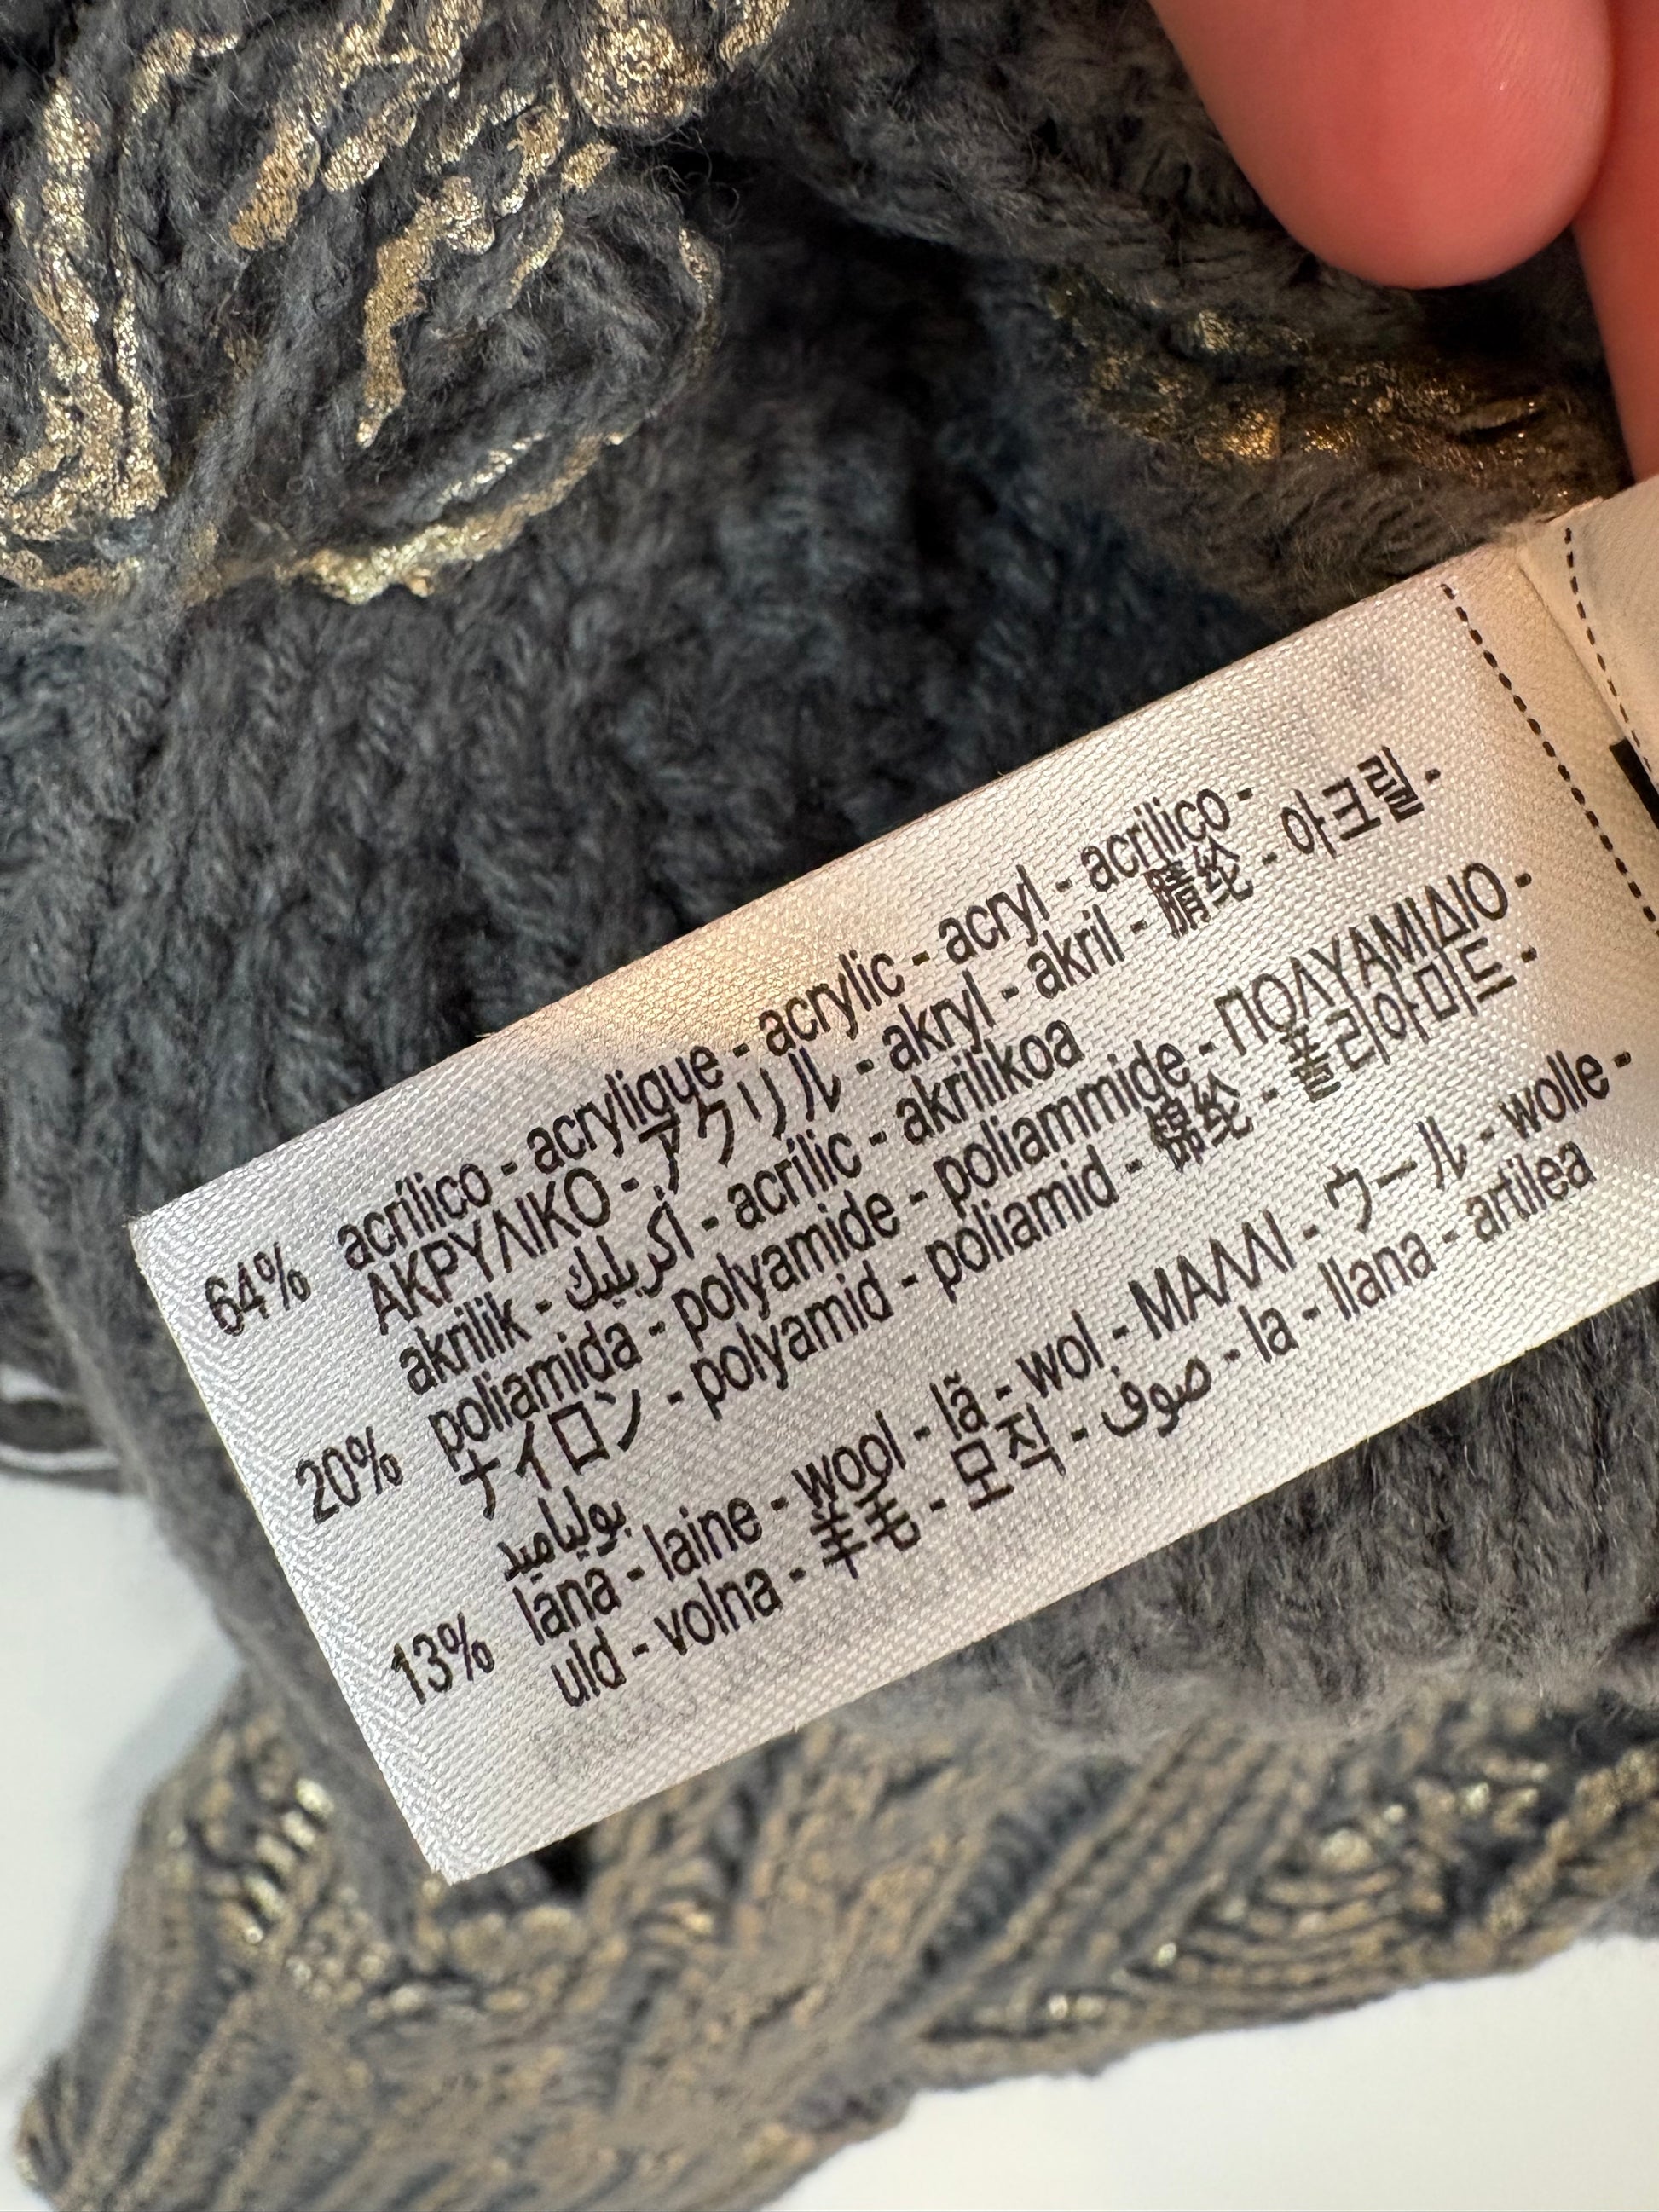 64% acrílico - acrylique - acrylic - acryl - acrilico -
ΑΚΡΥΛΙΚΟ - アクリル - akryl - akril - 腈纶 - 아크릴 -
akrilik - أكريليك - acrílic - akrilikoa
20% poliamida - polyamide - poliammide - ΠΟΛΥΑΜΙΔΙΟ -
ナイロン - polyamid - poliamid - 锦纶 - 폴리아미드 -
بولياميد
13% lana - laine - wool - lã - wol - ΜΑΛΛΙ - ウール - wolle -
uld - volna - 羊毛 - 모직 - صوف - la - llana - artilea